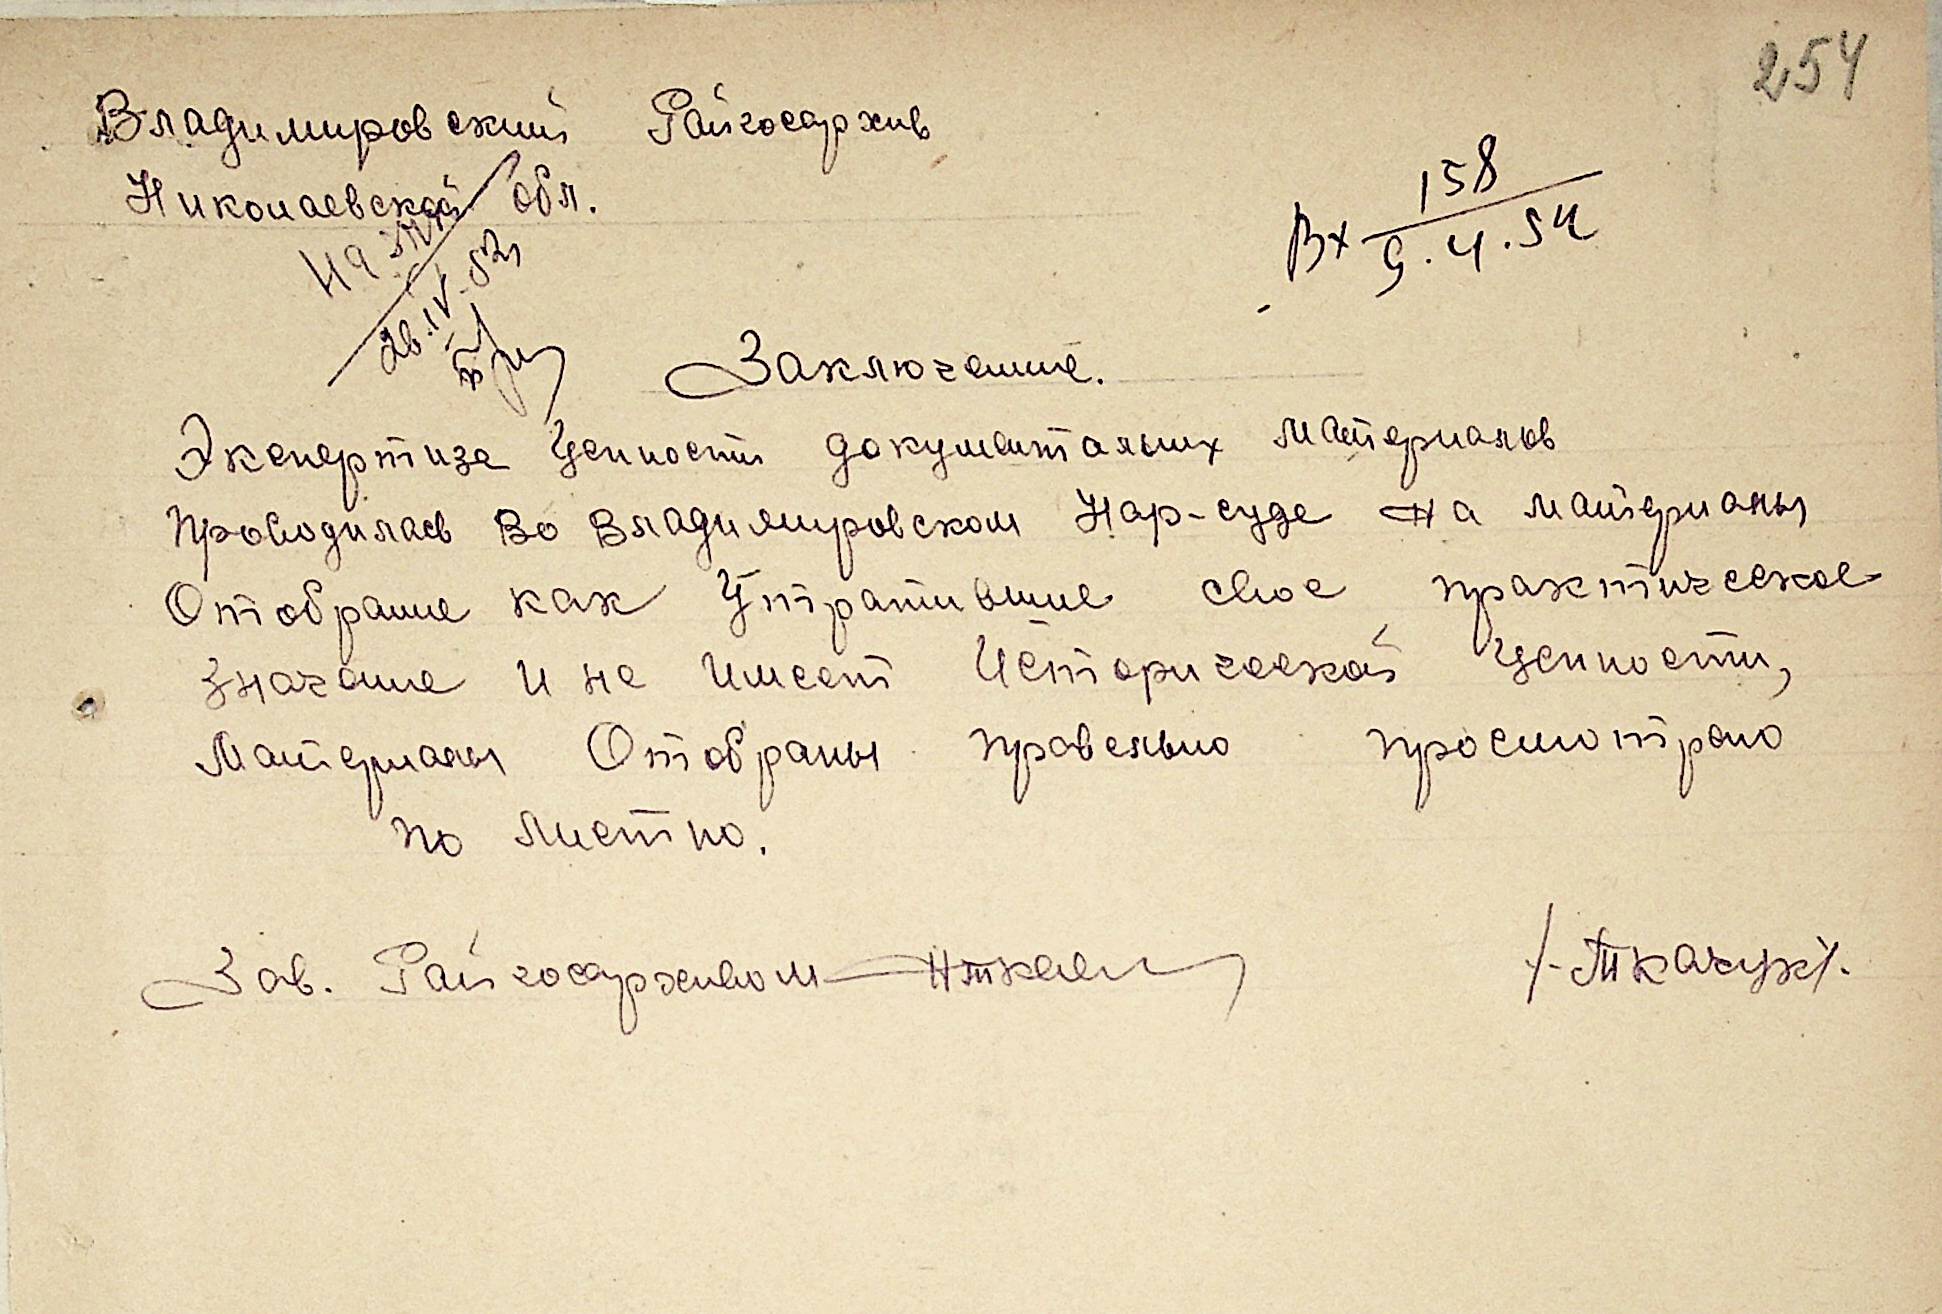 254
Владимировский Райгосархив
Николаевской обл.
Вх 158
9.4.54
На
26.IV-54
Заключение.
Экспертиза Ценности документальных материалов
Проводилась Во Владимировском Нар-суде На материалы
Отобраные как Утратившие свое практическое
значение и не имеет Исторической Ценности,
Материалы Отобраны правельно просмотрено
по листно.
Зав. Райгосархивом /-Ткачук/.